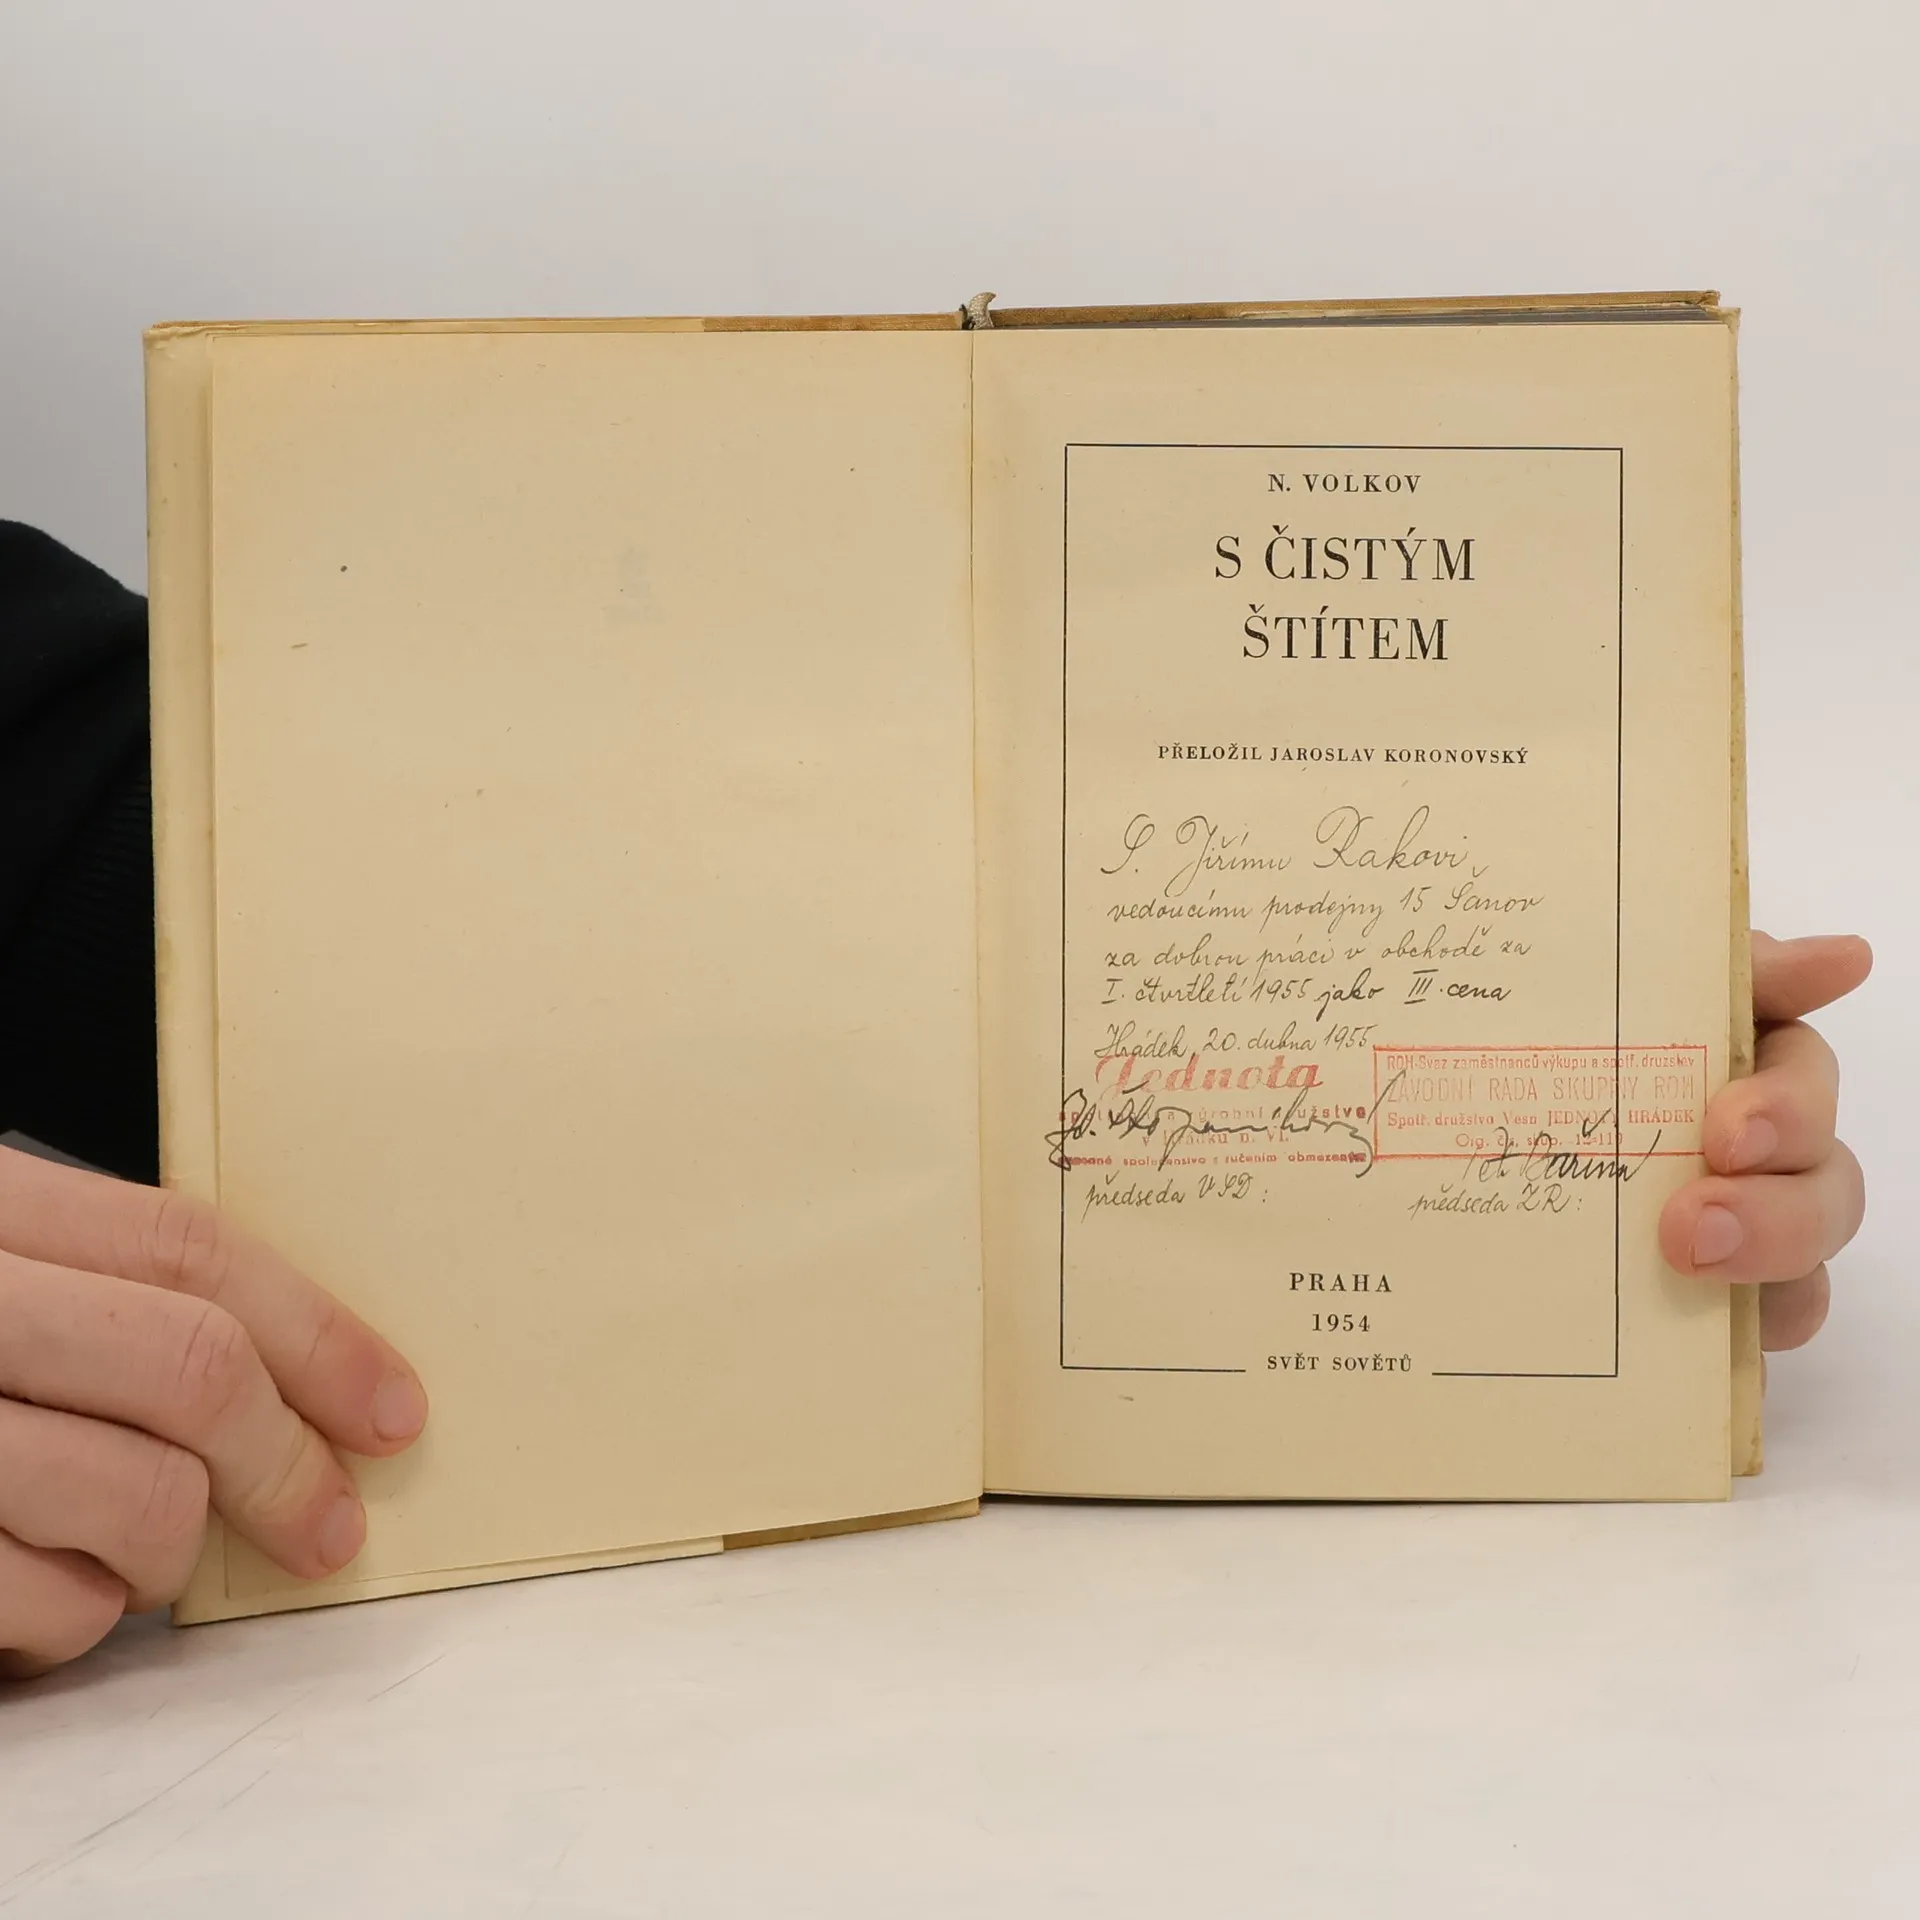 N. VOLKOV
S ČISTÝM
ŠTÍTEM
PŘELOŽIL JAROSLAV KORONOVSKÝ
S. Jiřímu Rakovi,
vedoucímu prodejny 15 Šanov
za dobrou práci v obchodě za
I. čtvrtletí 1955 jako III. cena
Hrádek, 20. dubna 1955
Jednota
výrobní družstvo
v Hrádku n. Vl.
společenstvo s ručením obmezeným
předseda VSD:
ROH-Svaz zaměstnanců výkupu a spotř. družstev
ZÁVODNÍ RADA SKUPINY ROH
Spotř. družstvo Vesn JEDNOTY HRÁDEK
Org. čís. skup.
předseda ZR:
PRAHA
1954
SVĚT SOVĚTŮ